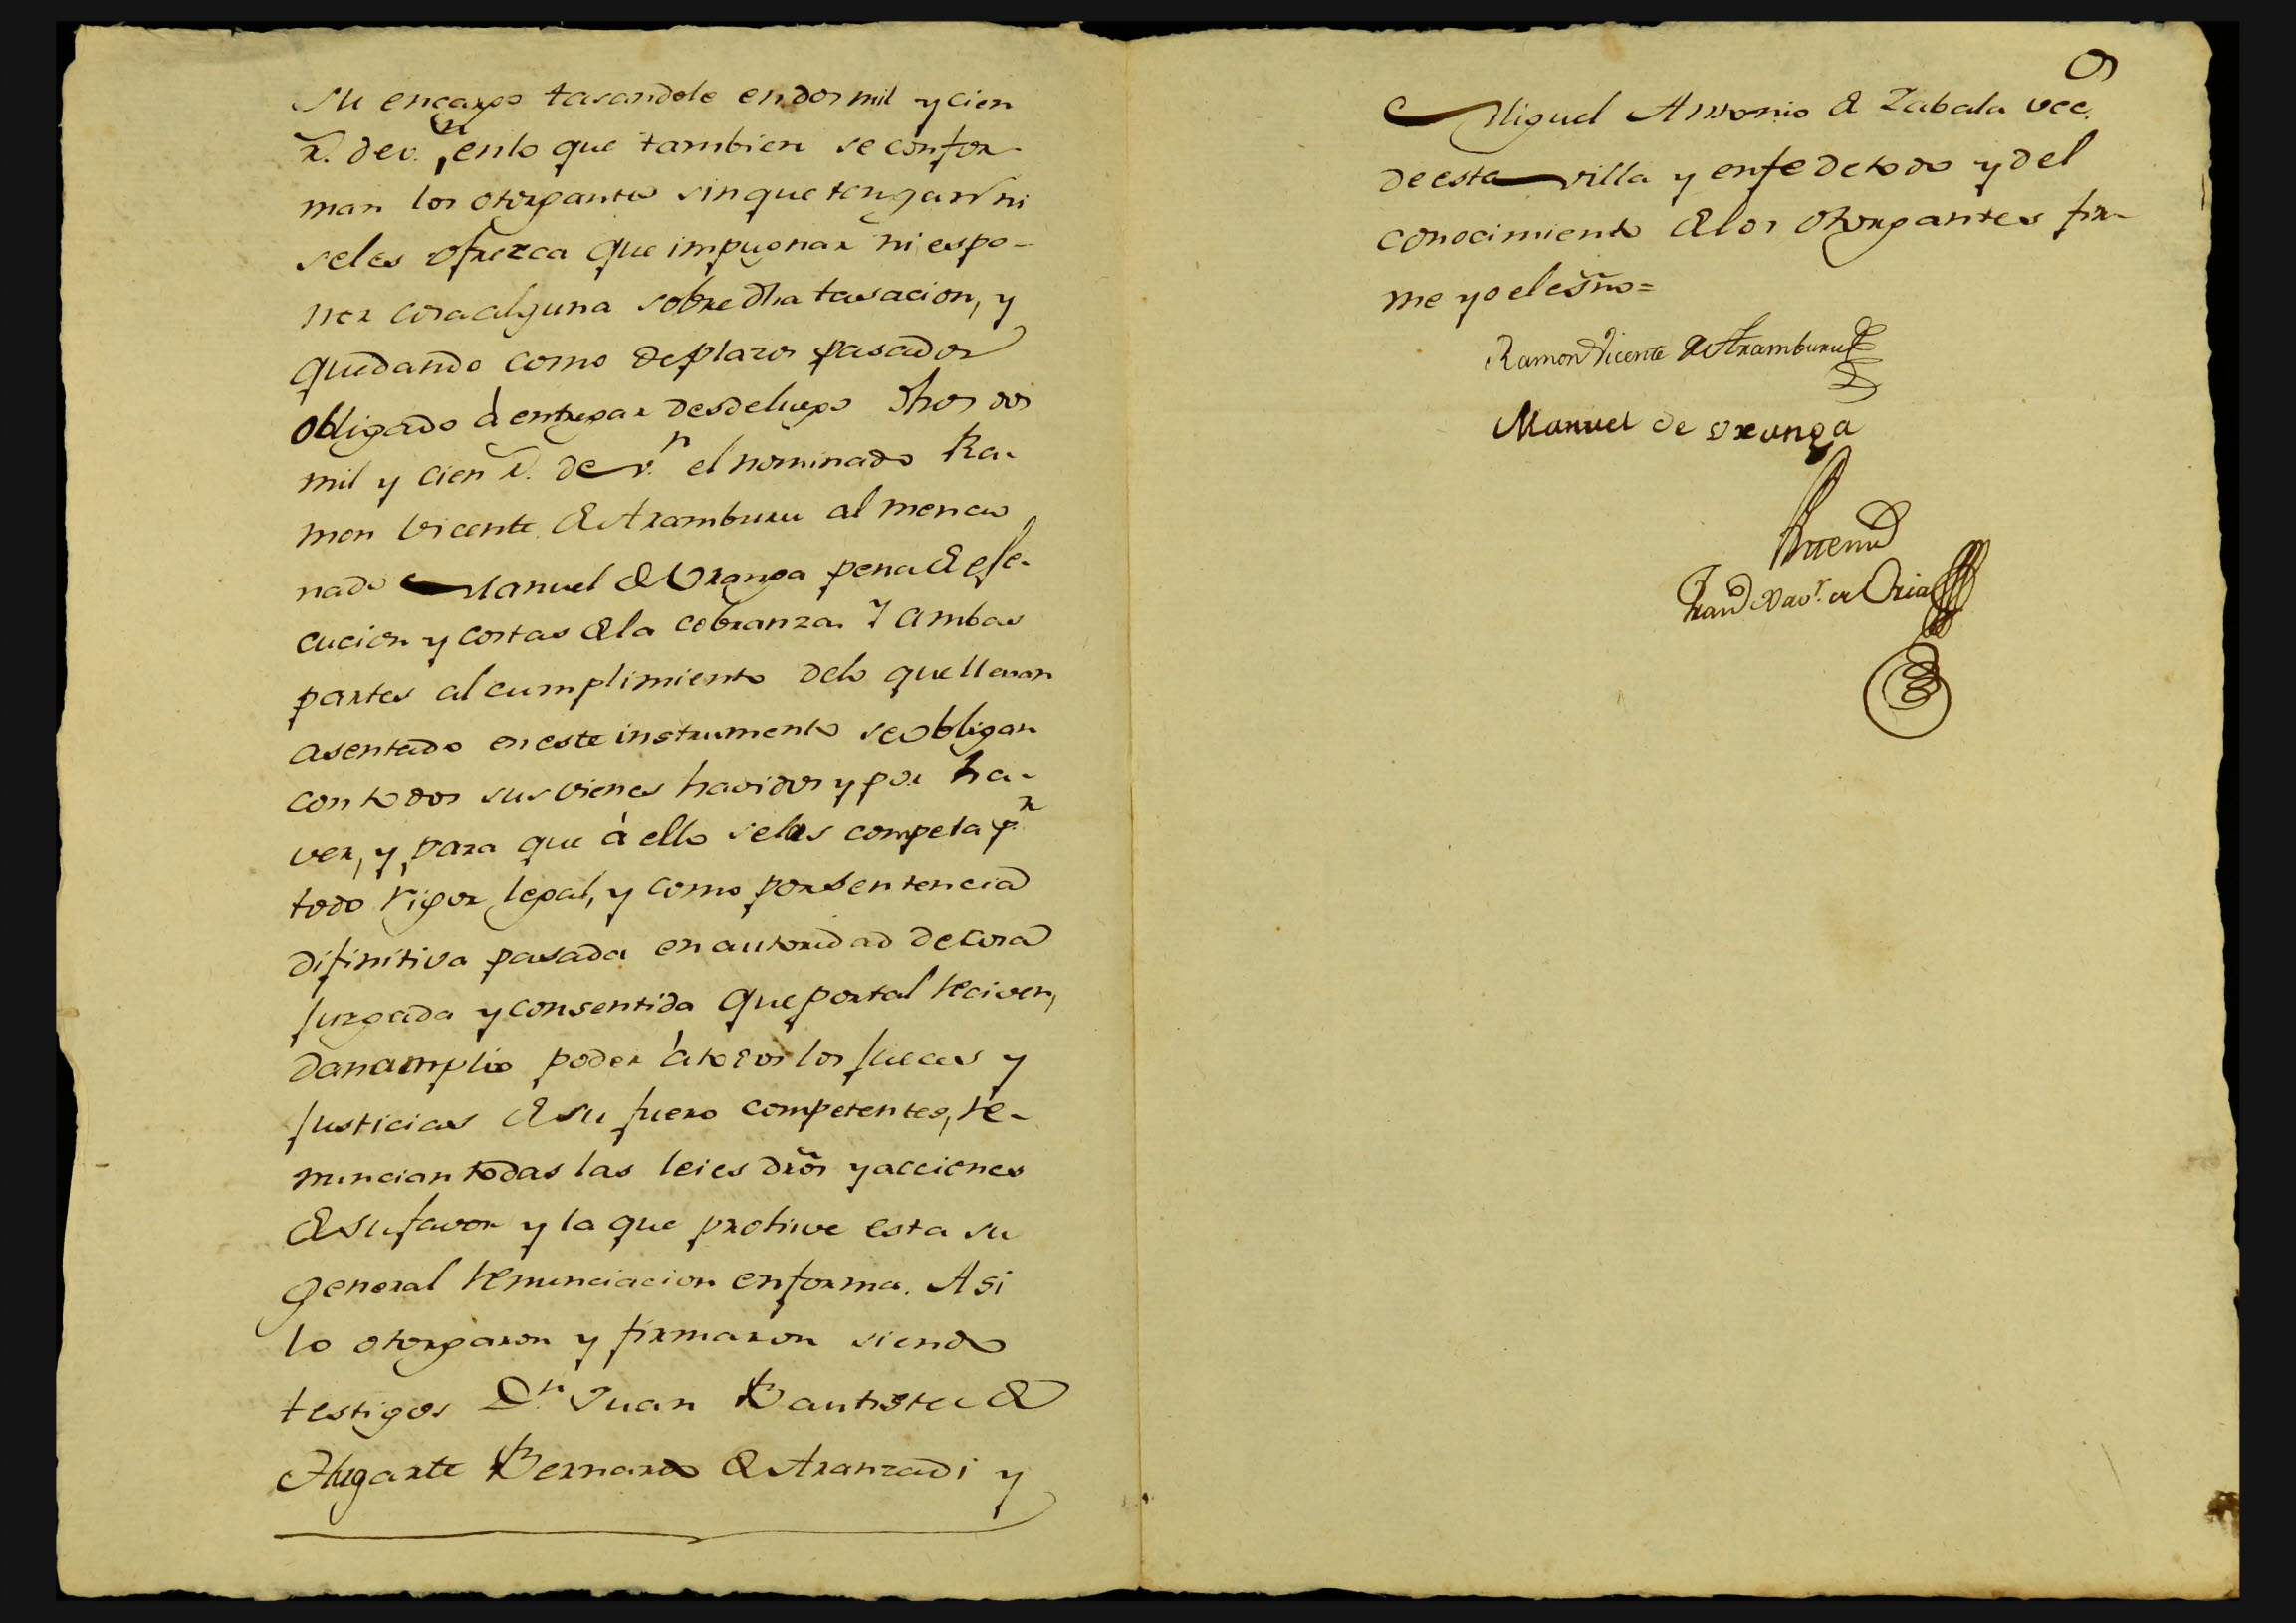 su encargo tasandole en dos mil y cien
rˢ. de v.ⁿ, en lo que tambien se confor-
man los otorgantes sin que tengan ni
se les ofrezca que impugnar ni espo-
ner cosa alguna sobre dha tasacion, y
quedando como de plazos pasados
obligado á entregar desde luego dhos dos
mil y cien rˢ. de v.ⁿ el nominado Ra-
mon Vicente de Aramburu al mencio
nado Manuel de Uranga pena de eje-
cucion y costas de la cobranza. Y ambas
partes al cumplimiento de lo que llevan
asentado en este instrumento se obligan
con todos sus vienes havidos y por ha-
ver, y para que á ello se les compela p.ʳ
todo rigor legal, y como por sentencia
difinitiva pasada en autoridad de cosa
juzgada y consentida que por tal reciven,
dan amplio poder á todos los jueces y
justicias de su fuero competentes, re-
nuncian todas las leies dr̃os y acciones
de su favor y la que prohive esta su
general renunciacion en forma. Asi
lo otorgaron y firmaron siendo
testigos D.ⁿ Juan Bautista de
Alugarte Bernardo de Aranzadi y
Miguel Antonio de Zabala vec.
de esta villa y en fe de todo y del
conocimiento de los otorgantes fir-
me yo el esño=
Ramon Vicente de Aramburu
Manuel de Vranga
Antemi
Xav.ʳ de Oria